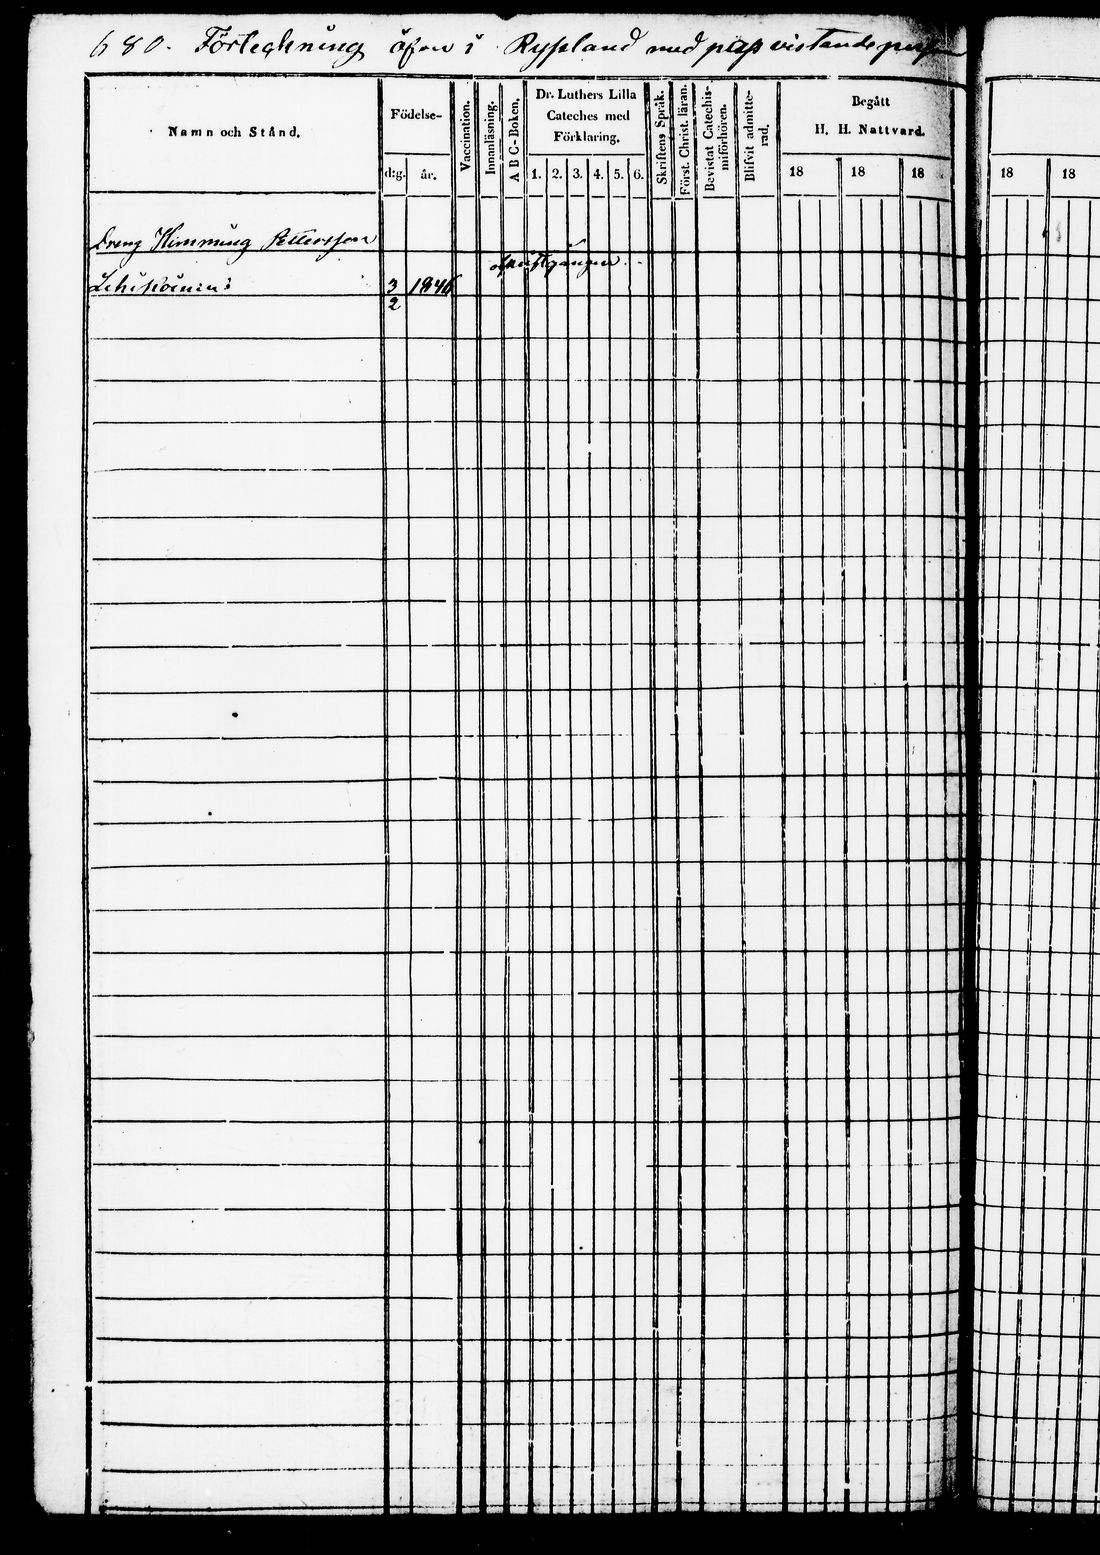 680. Förteckning öfver i Ryssland med pass vistande
Namn och Stånd.
Födelse-
d:g.
år.
Vaccination.
Innanläsning.
A B C-Boken.
Dr. Luthers Lilla
Cateches med
Förklaring.
1. 2. 3. 4. 5. 6.
Skriftens Språk.
Först. Christ. läran.
Bevistat Catechis-
miförhören.
Blifvit admitte-
rad.
Begått
H. H. Nattvard.
18 18 18
18 18
Dreng Henning Pettersson
3 1846
2